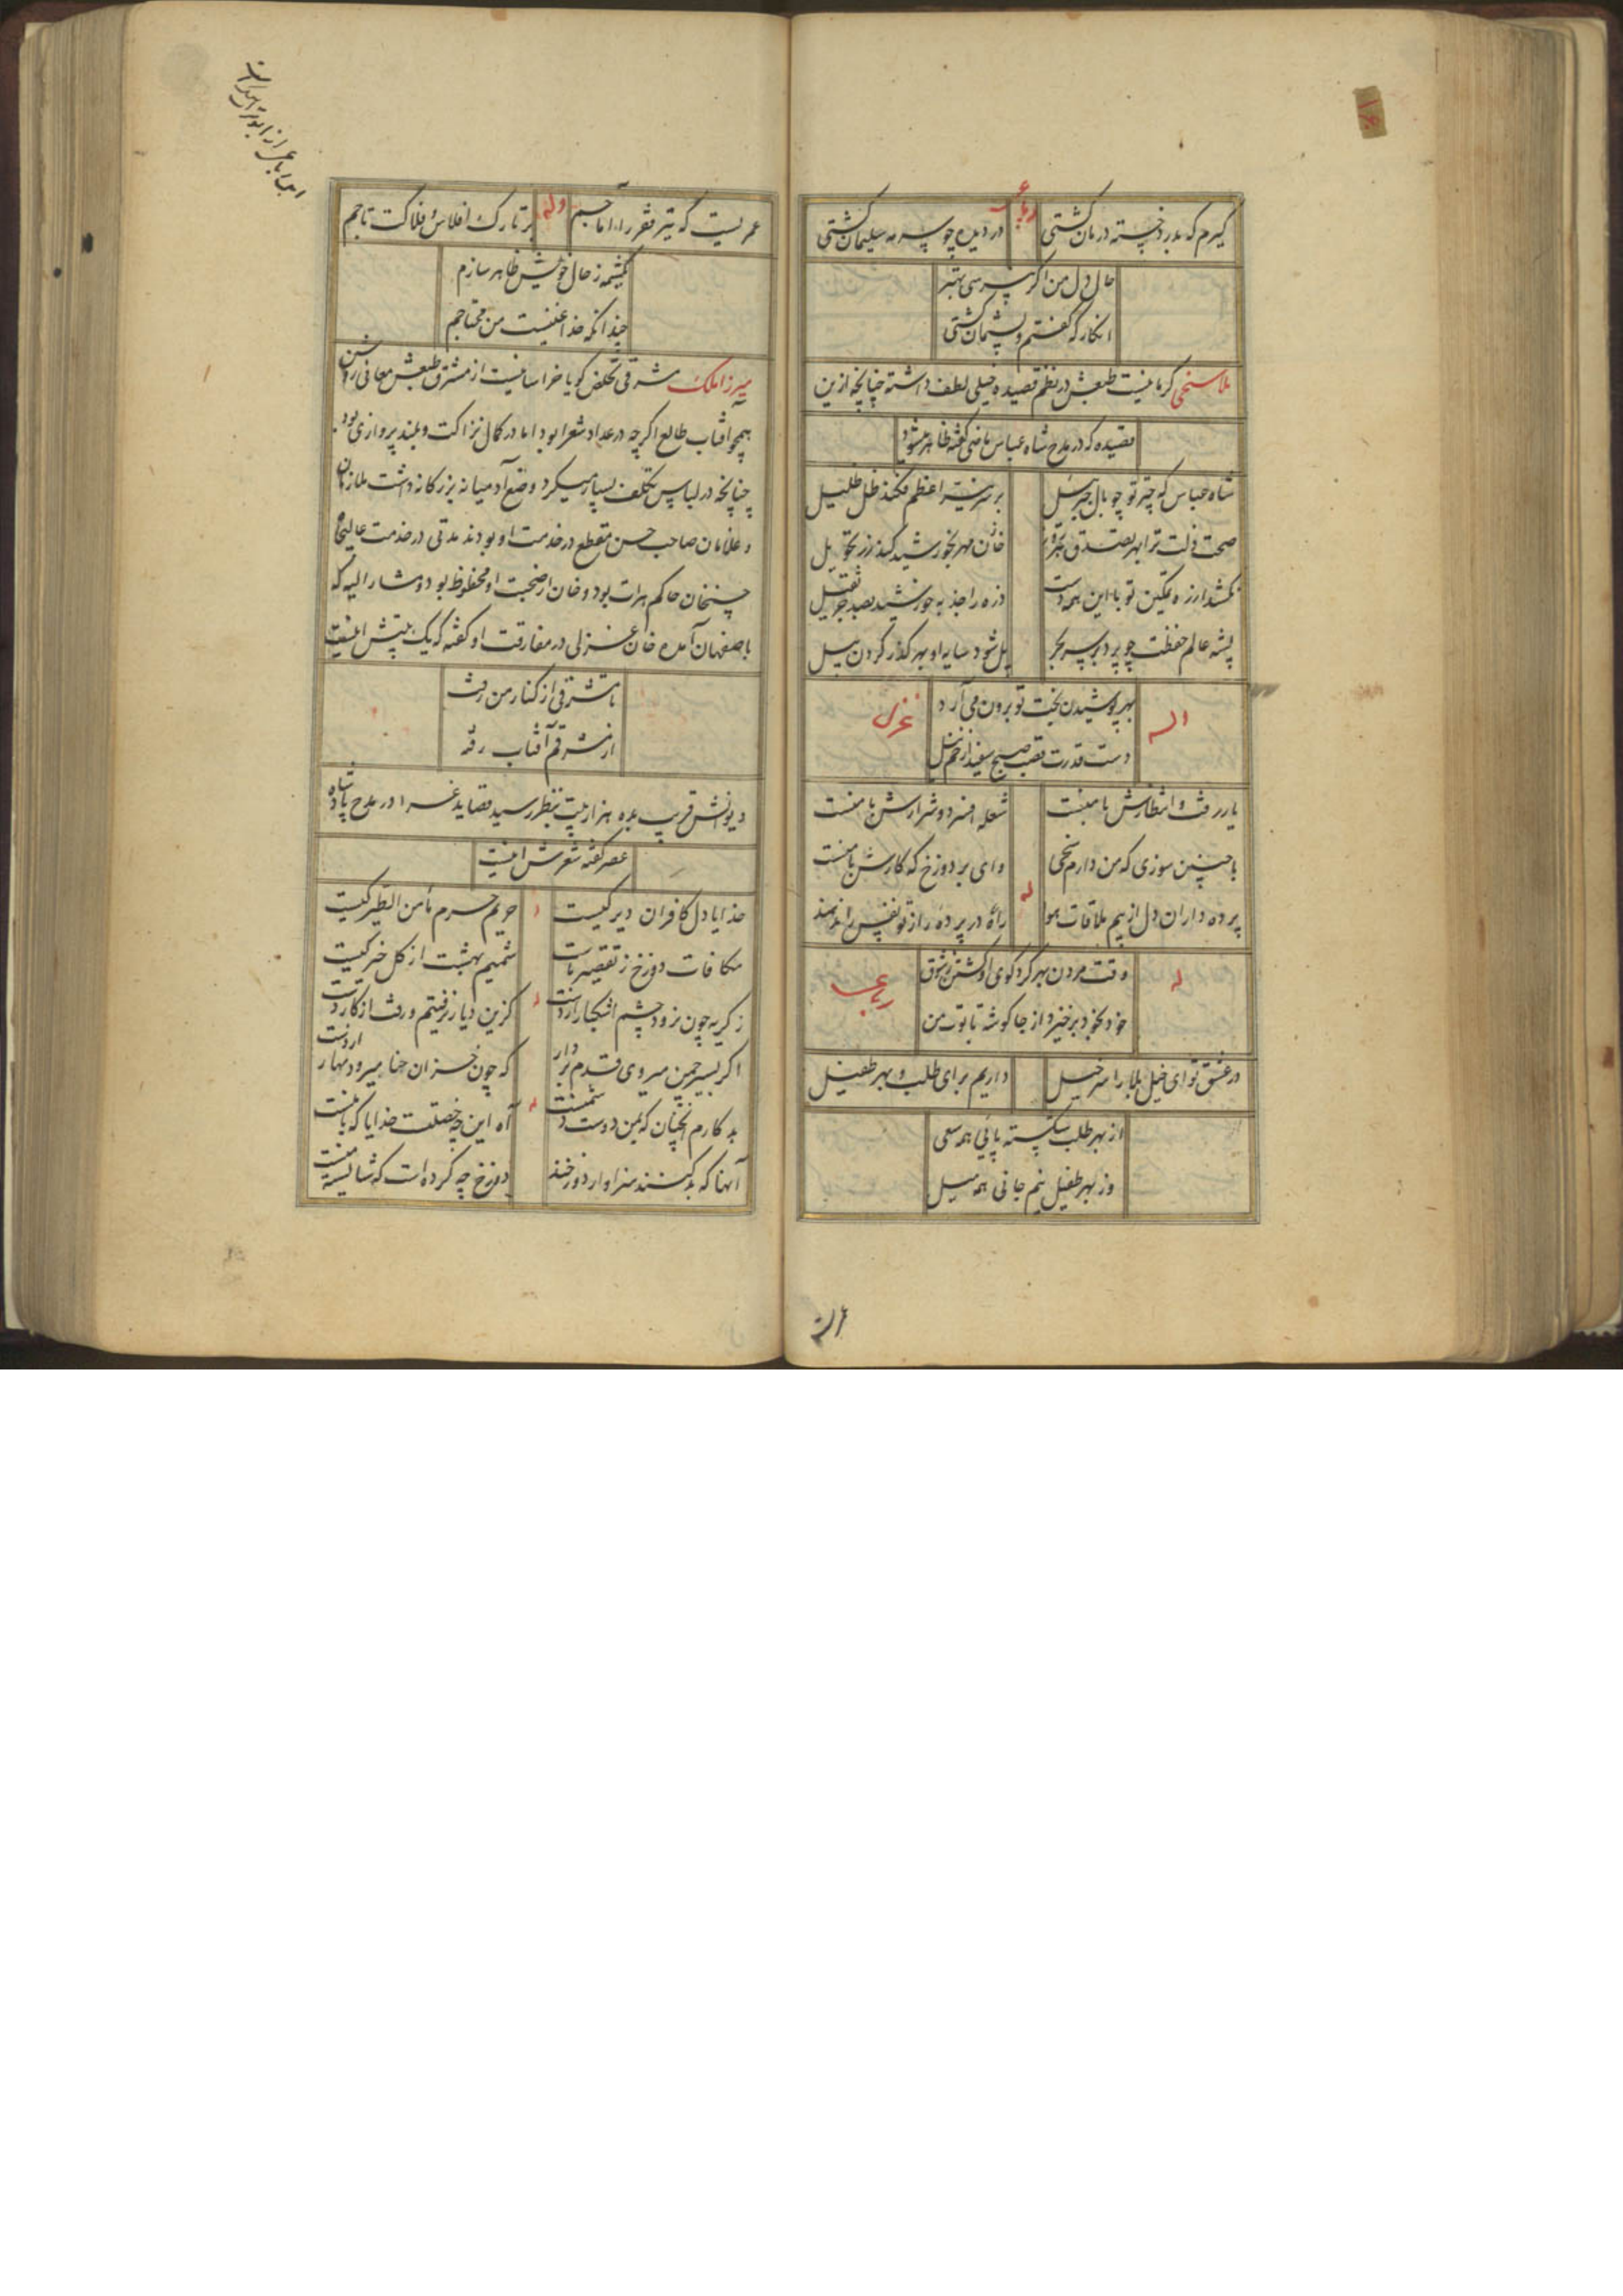 گیرم که بدرد خسته درمان گشتی
رباعی
در دیده چو سرمه سلیمان گشتی
حال دل من اگر بپرسی بهتر
انکار که گفتم و پشیمان گشتی
ملا سنحی کرمانیست طبعش در نظم قصیده خیلی لطف داشته چنانچه ازین
قصیده که در مدح شاه عباس ماضی گفته ظاهر میشود
شاه عباس که چتر تو چو بال جبریل
بر سر نیر اعظم فکند ظل ظلیل
صحت ذات ترا بهر تصدق
خان مهر بخورشید کند زر تحویل
نکشد ارزه تمکین تو با این همه دست
ذره را جذبه خورشید بصد جر ثقیل
پشه عالم حفظت چو پرد بر سر بحر
پل شود سایه او بهر گذر کردن پیل
بهر پوشیدن بخت تو برون می آرد
دست قدرت قصب صبح سفید از خم نیل
وله
غزل
یار رفت و انتظارش با منست
شعله افسرد و شرارش با منست
با چنین سوزی که من دارم
وای بر دوزخ که کارش با منست
له
پرده داران دل از بیم ملاقات هوا
راه در پرده راز تو نفس را ندهند
له
وقت مردن بهر گرد کوی او گشتن ز شوق
خود بخود برخیزد از جا گوشه تابوت من
رباعی
در عشق تو ای خیل بلا را سر خیل
داریم برای طلب و بهر طفیل
از بهر طلب شکسته پائی همه سعی
وز بهر طفیل نیم جانی همه میل
این رباعی از ابو تراب
عمریست که تیر فقر را آماجم
وله
بر تارک افلاس و فلاکت تاجم
یکشمه ز حال خویش ظاهر سازم
چندانکه خدا غنیست من محتاجم
میرزا ملک مشرقی تخلص گویا خراسانیست از مشرق طبعش معانی روشن
همچو آفتاب طالع اگرچه در عداد شعرا بود اما در کمال نزاکت و بلند پروازی بود
چنانچه در لباس تکلف بسیار میکرد وضع آدمیانه بزرگانه داشت ملازمان
و غلامان صاحب حسن مقطع در خدمت او بودند مدتی در خدمت عالیجاه
حسنخان حاکم هرات بود و خان از صحبت او محظوظ بود و مشار الیه که
باصفهان آمده خان غزلی در مفارقت او گفته که یک بیتش اینست
تا مشرقی از کنار من رفت
از مشرقم آفتاب رفته
دیوانش قریب بده هزار بیت بنظر رسید قصاید غرا در مدح پادشاه
عصر گفته شعرش اینست
خدایا دل کافران دیر کیست
حریم حرم مأمن الطیر کیست
مکافات دوزخ ز تقصیر ماست
شمیم بهشت از گل خیر کیست
ز گریه چون نرود چشم اشکبار از دست
کزین دیار نرفتیم و رفت از کار دست
اگر بسیر چمن میروی قدم بردار
که چون خزان حنا میرود بهار از دست
بد کارم آنچنان که بمن دوست دشمنست
آه این چه خصلتست خدایا که با منست
آنها که بد کنند سزاوار دوزخند
دوزخ چه کرده است که شایسته منست